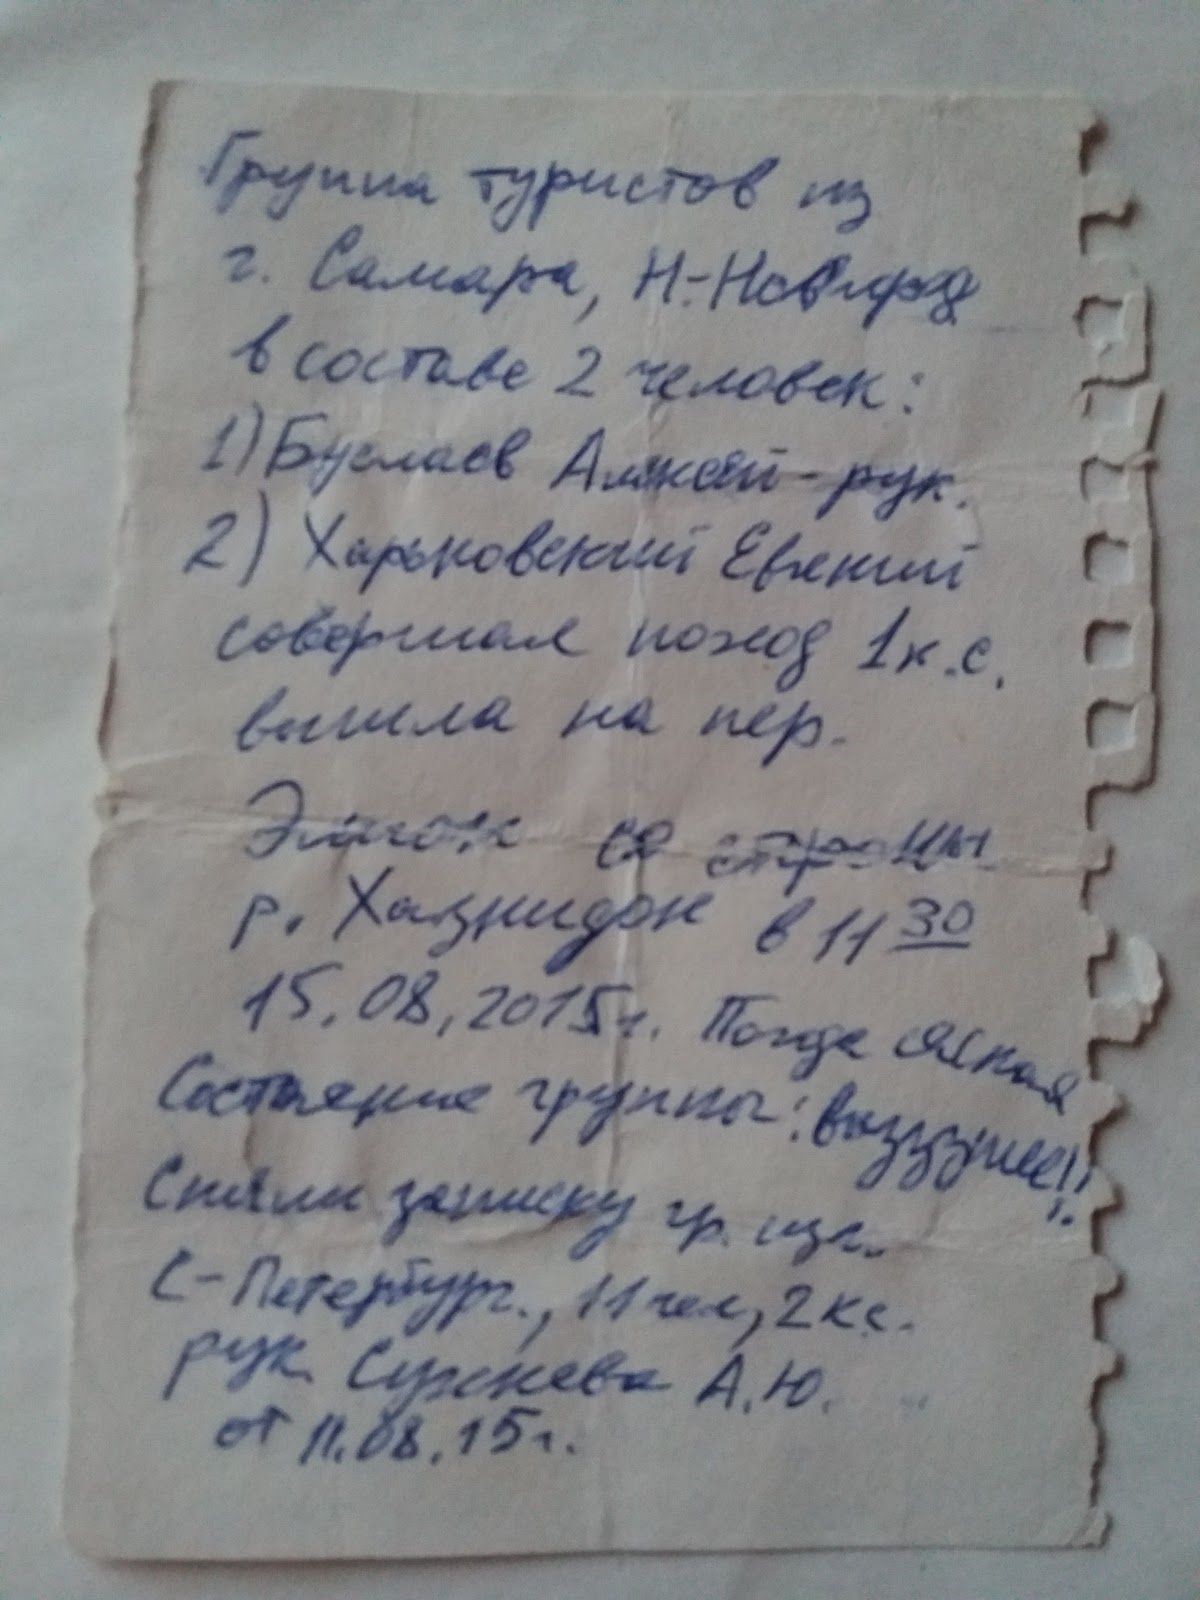 Группа туристов из
г. Самара, Н-Новгород
в составе 2 человек:
1) Буслаев Алексей - рук.
2) Харьковский Евгений
совершая поход 1 к.с.
вышла на пер.
со стороны
р. Хазнидон в 11 30
15.08.2015г. Погода ясная
Состояние группы: выззушее!!
Сняли записку гр. из г.
С-Петербург., 11 чел, 2 к.с.
рук. А.Ю.
от 11.08.15г.